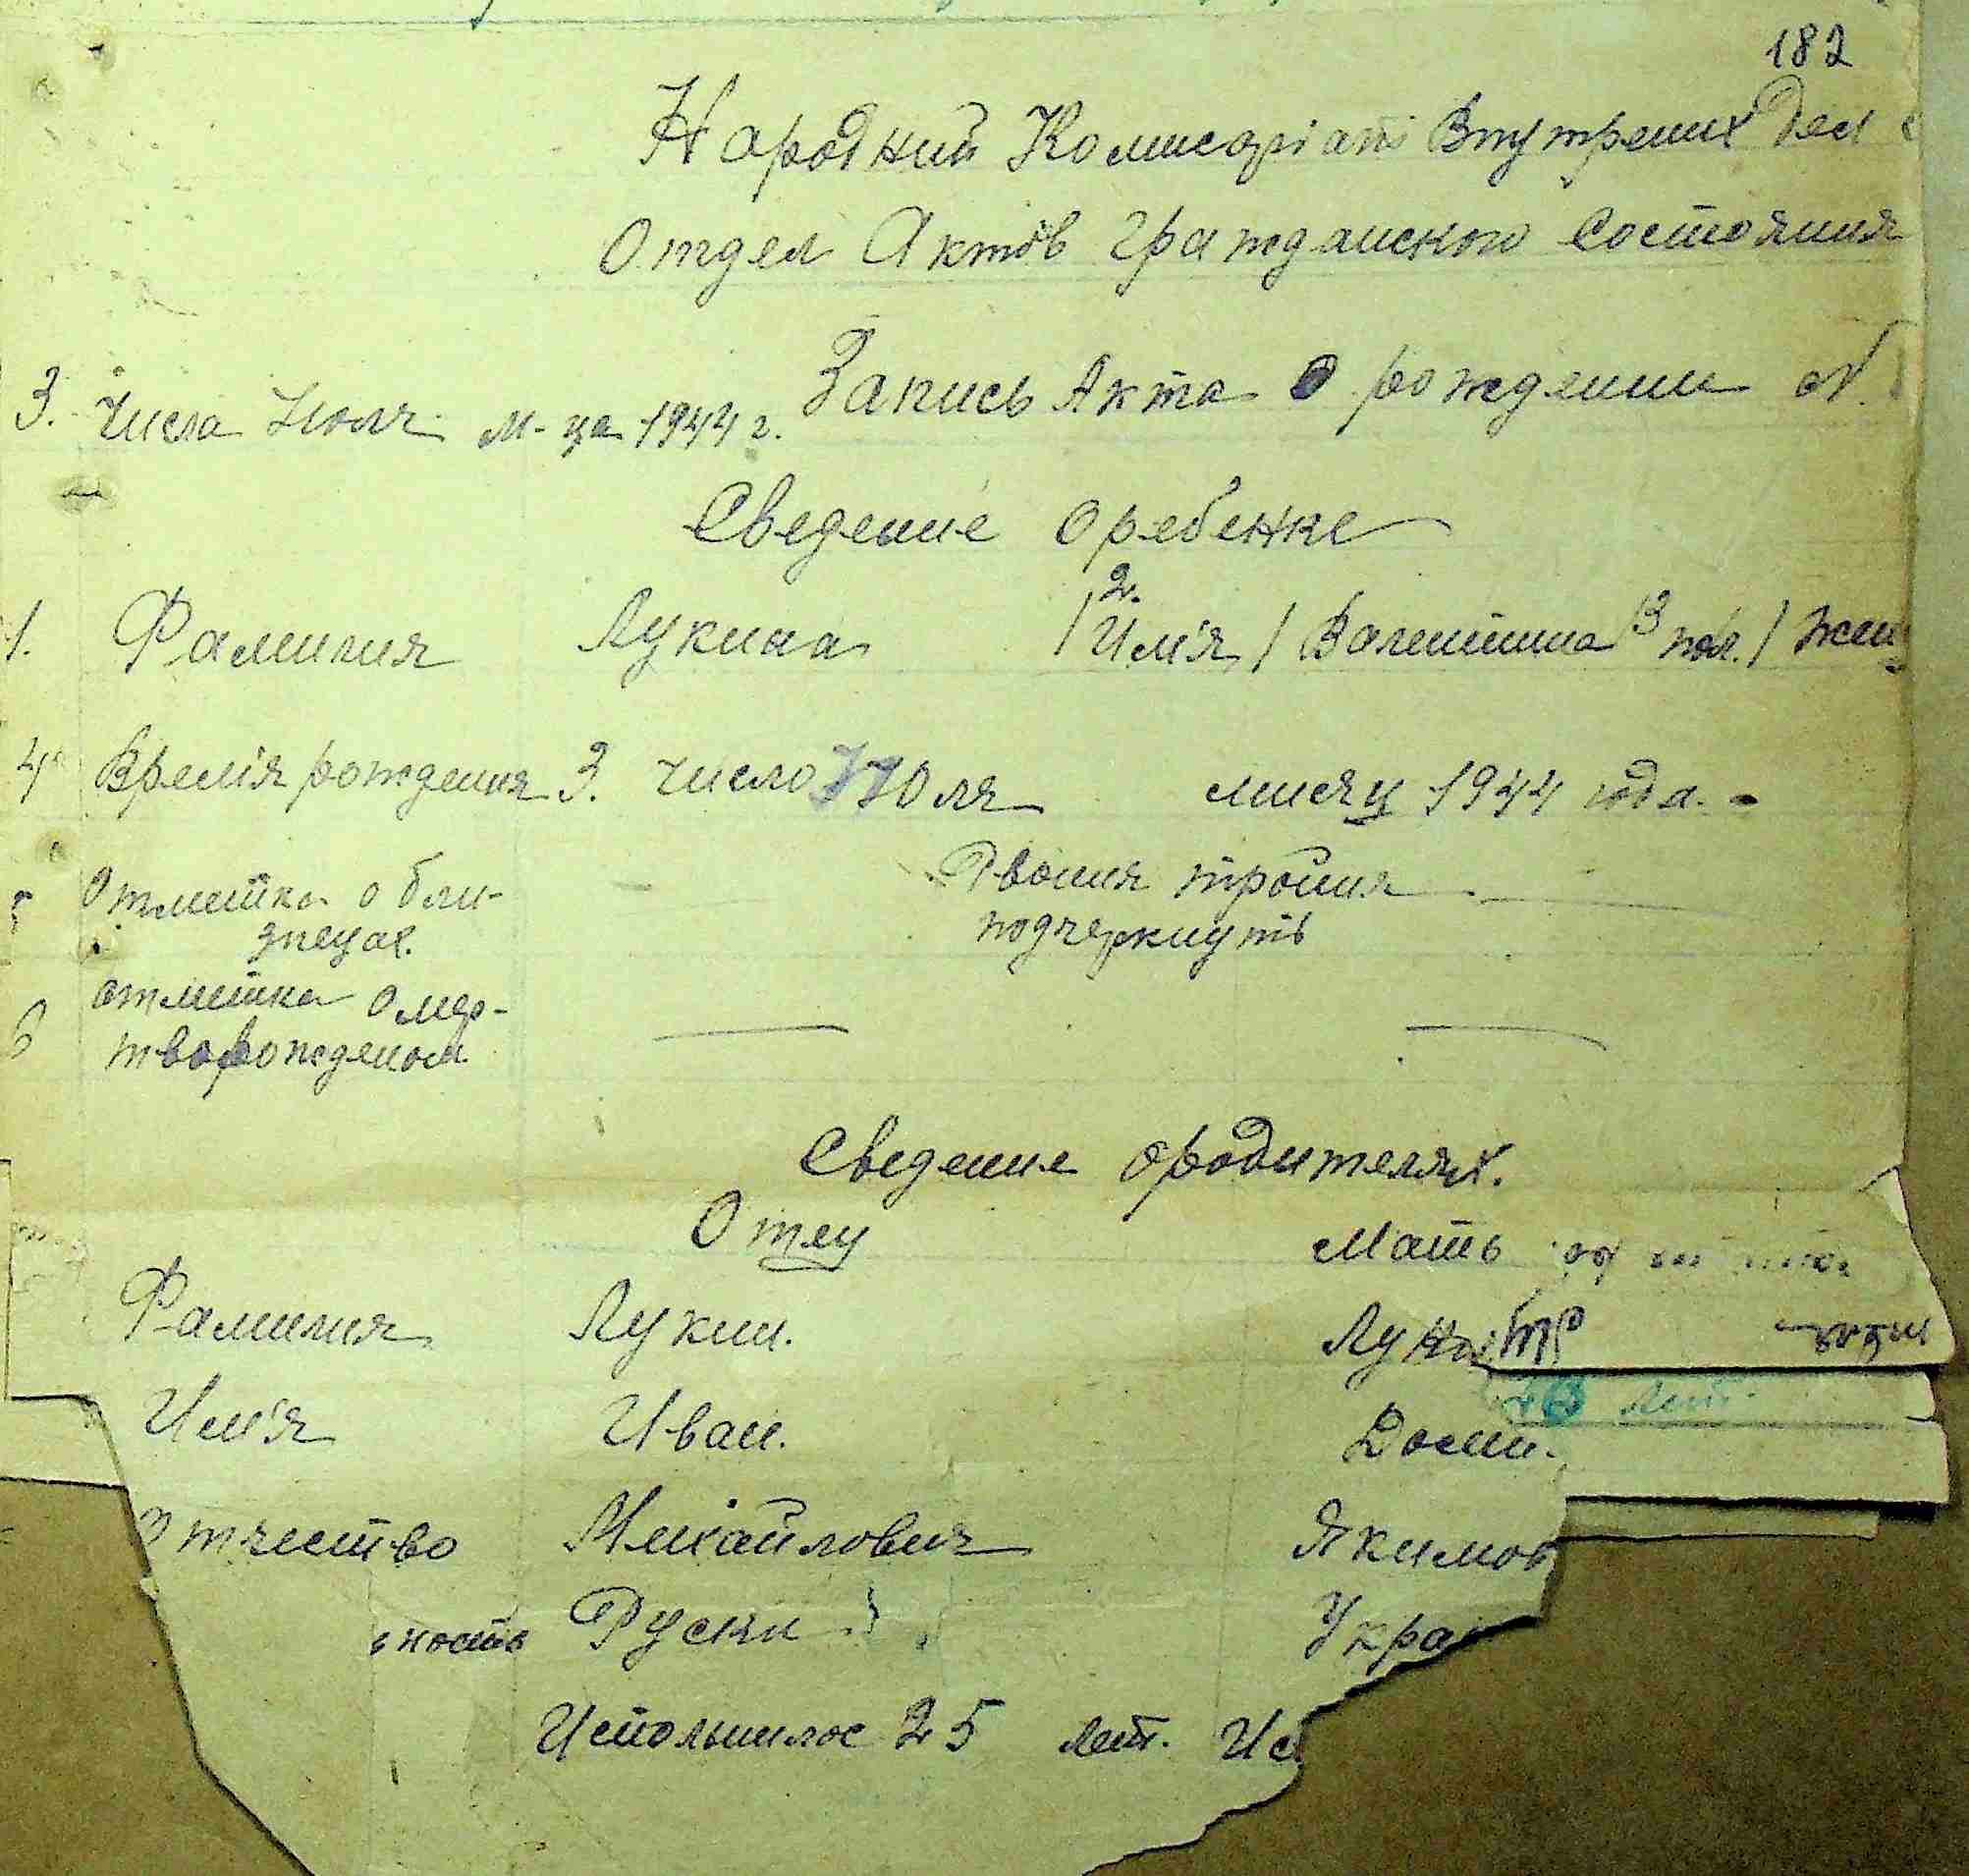 182
Народний Комисаріат Внутрених Дел
Отдел Актов Гражданского Состояния
Запись Акта о рождении №
3. числа Июля м-ца 1944 г.
Сведение о ребенке
1. Фамилия Лукина / 2. Им'я / Валентина / 3 пол. / жен
4 Врем'я рождения 3. число Июля мисяц 1944 года.
5 Отметка о бли- Двойня тройня
знецах. подчеркнуть
6 отметка о мер-
творожденом
Сведение о родителях.
Отец Мать
Фамилия Лукин.
Им'я Иван. Домн.
Отчество Михайлович Якимов
ность Руски Укра
Испольнилос 25 лет. Ис